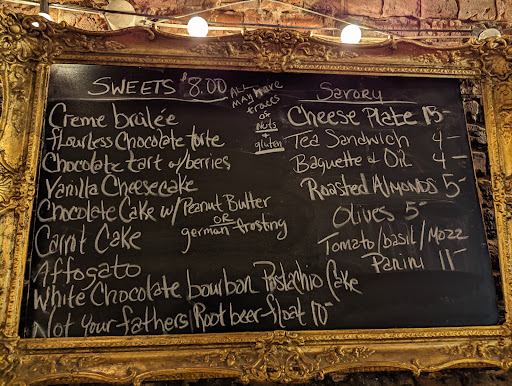 SWEETS $8.00
ALL
MAY have
traces
of
Nuts
&
gluten
Creme brulée
flourless Chocolate torte
Chocolate tart w/berries
Vanilla Cheesecake
Chocolate Cake w/ Peanut Butter
OR
german frosting
Carrot Cake
Affogato
White Chocolate bourbon Pistachio Cake
Not Your fathers Root beer float 10-
Savory
Cheese Plate 15-
Tea Sandwich 4-
Baguette & Oil 4-
Roasted Almonds 5-
Olives 5-
Tomato/basil/Mozz
Panini 11-